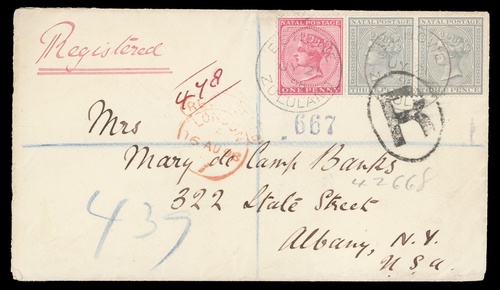 Registered
NATAL POSTAGE
NATAL POSTAGE
NATAL POSTAGE
ONE PENNY
PENCE
ZULULAND
478
LONDON
16 AU
667
R
Mrs
Mary de Camp Banks
42668
322 State Street
439
Albany, N.Y.
U.S.A.